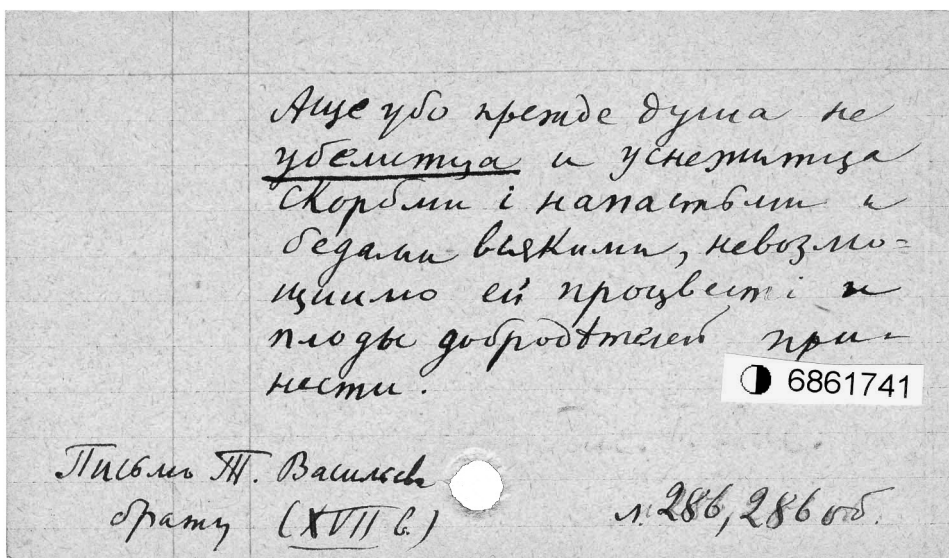 Аще убо прежде душа не
убелитца и уснежитца
скорбми і напастьми и
бедами всякими, невозмо=
щиимо ей процвести и
плоды добродѣтелей при-
нести.
6861741
Письмо Т. Васильева
брату (XVII в.)
л. 286, 286 об.